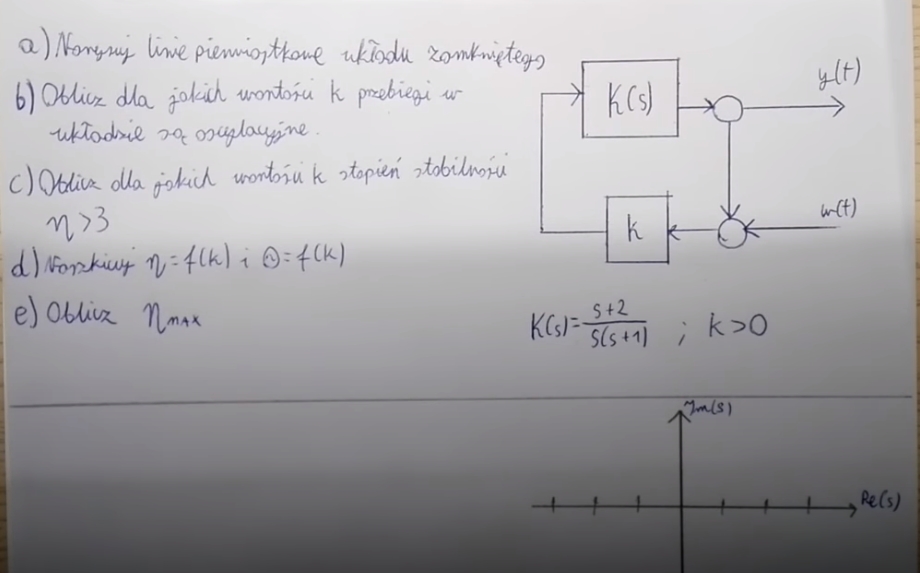 a) Narysuj linie pierwiastkowe układu zamkniętego
b) Oblicz dla jakich wartości k przebiegi w
układzie są oscylacyjne.
c) Oblicz dla jakich wartości k stopień stabilności
η>3
d) Naszkicuj η=f(k) i Θ=f(k)
e) Oblicz ηMAX
K(s)
y(t)
k
w(t)
K(s)=\frac{s+2}{s(s+1)} ; k>0
Jm(s)
Re(s)